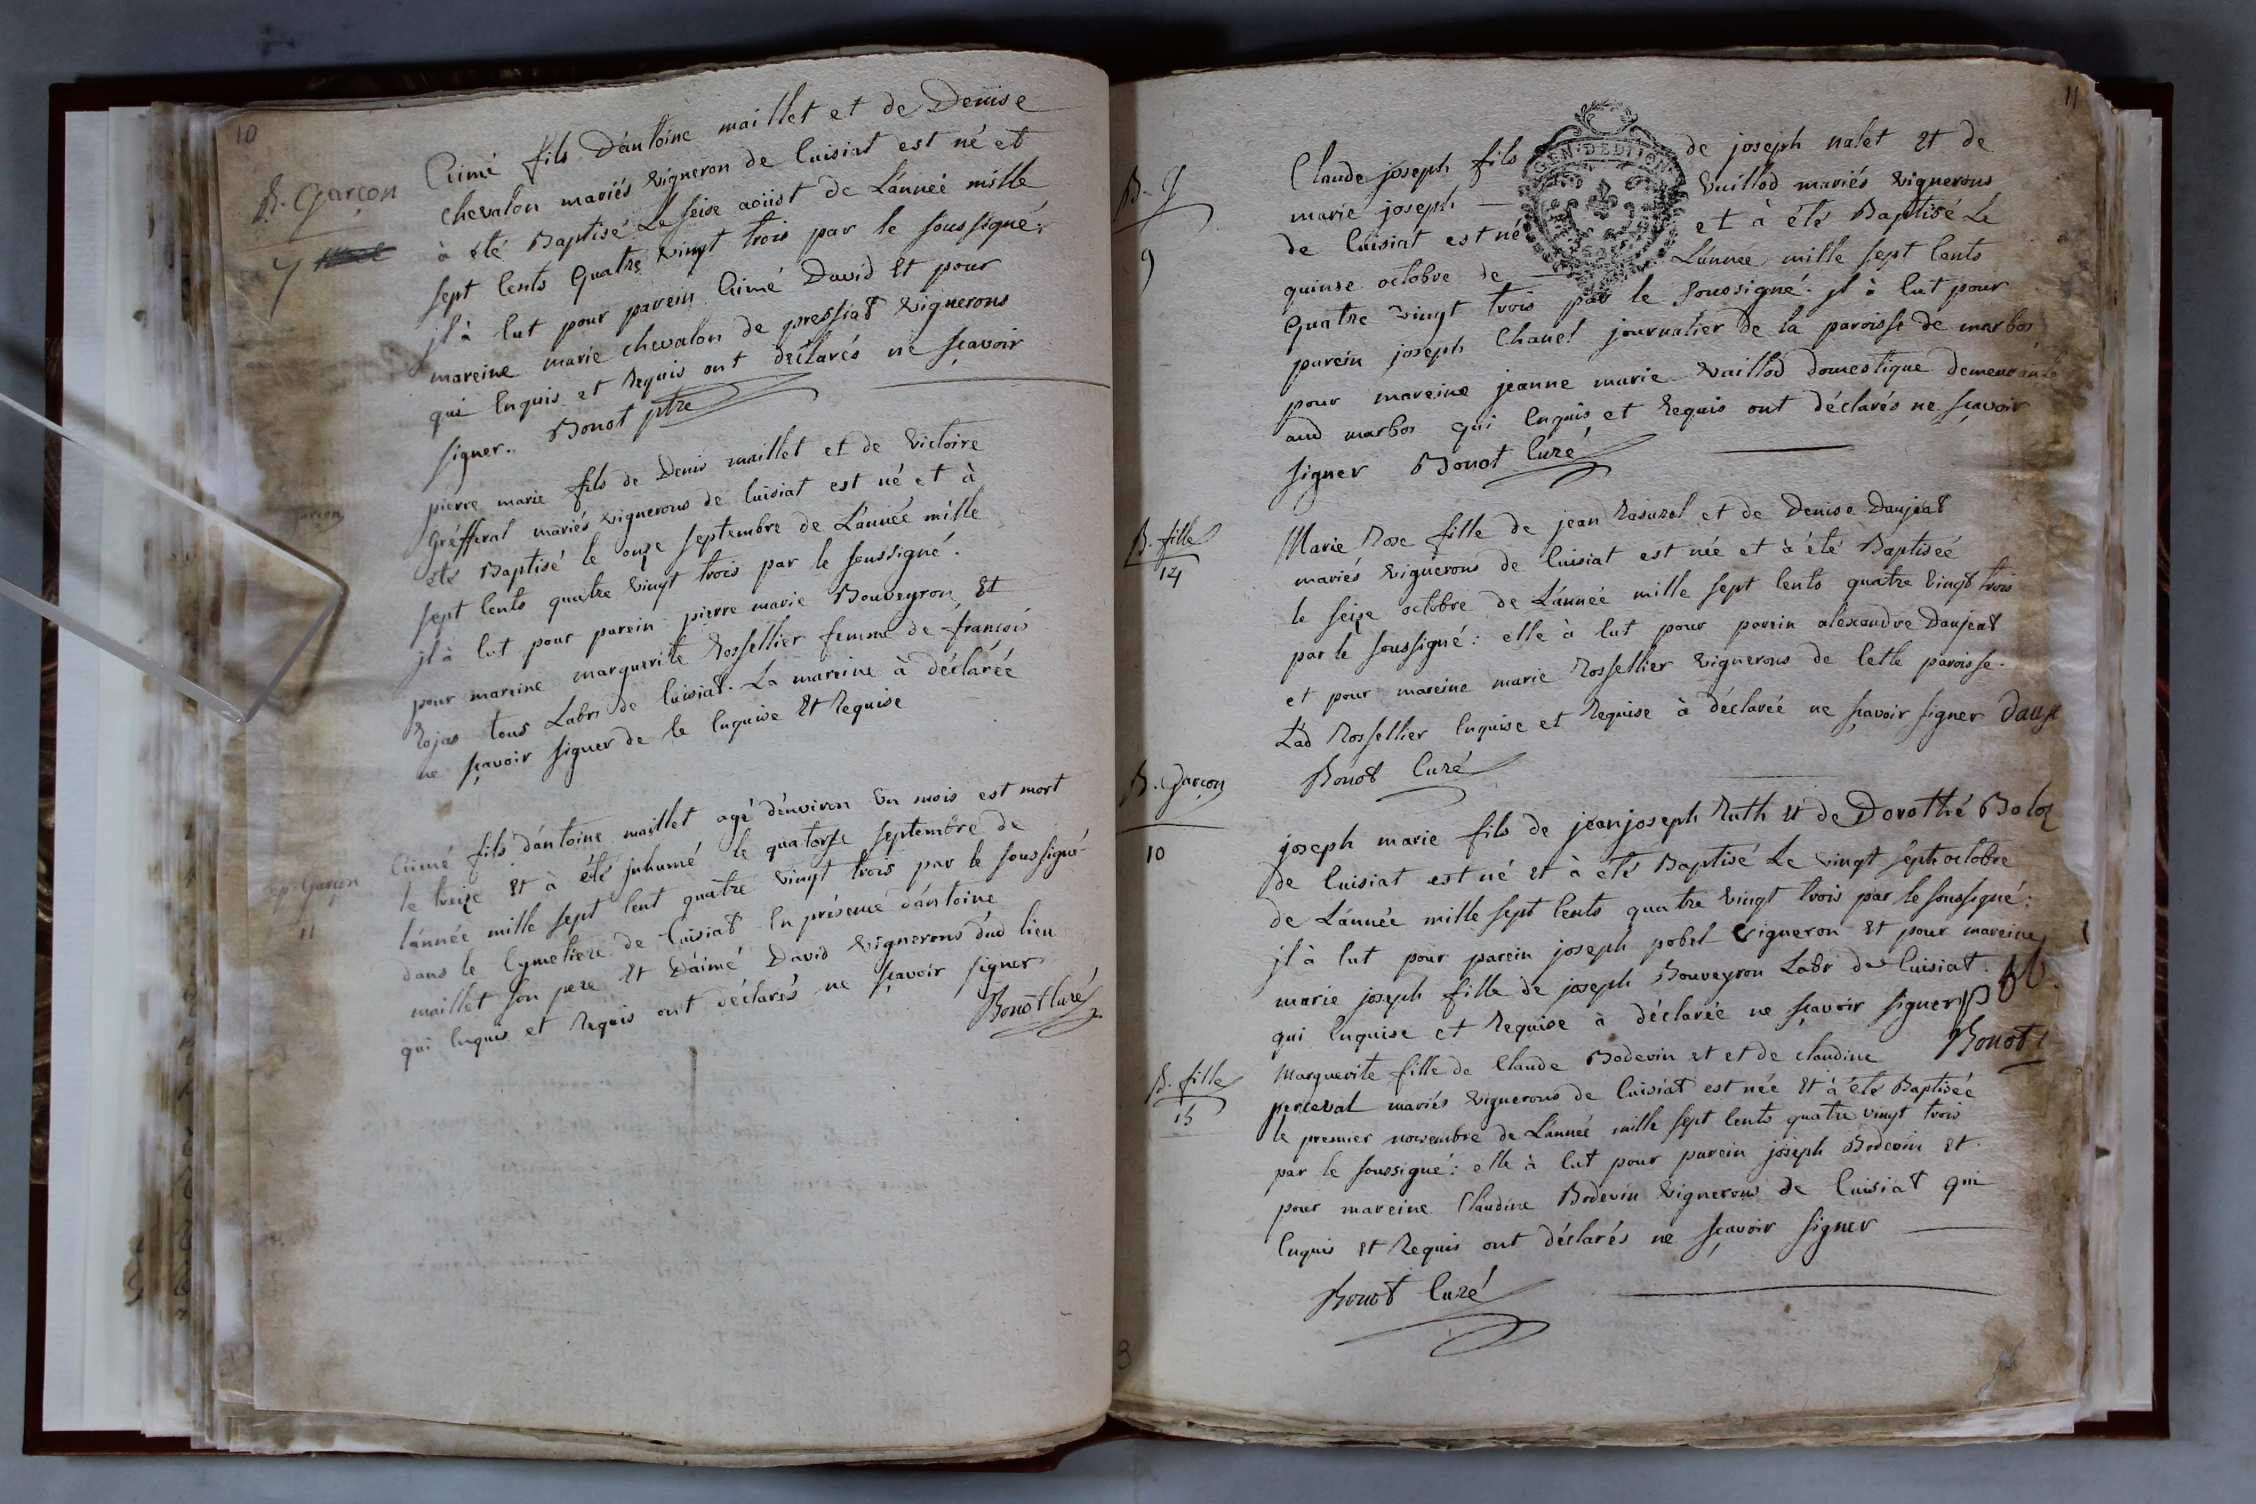 10
B. Garçon
7
Aimé fils D'antoine maillet et de Denise
chevalon mariés vigneron de Cuisiat est né et
à été Baptisé Le seise aoüst de L'année mille
sept Cents Quatre vingt trois par le soussigné:
jl à Eut pour parein Aimé David Et pour
mareine marie chevalon de pressiat vignerons
qui Enquis et Requis ont déclarés ne sçavoir
signer. Bonot ptre
Garçon
pierre marie fils de Denis maillet et de Victoire
Grèfferat mariés vignerons de Cuisiat est né et à
été Baptisé le onze septembre de L'année mille
sept Cents quatre vingt trois par le soussigné.
jl à Eut pour parein pierre marie Bouveyron Et
pour mareine marguerite Rossellier femme de françois
Rojas tous Labrs de Cuisiat. La mareine à déclarée
ne sçavoir signer de ce Enquise Et Requise
sep. Garçon
11
Aimé fils d'antoine maillet agé d'environ un mois est mort
le treize Et à été jnhumé le quatorse septembre de
l'année mille sept Cent quatre vingt trois par le soussigné
dans le Cymetiere de Cuisiat En présence d'antoine
maillet son pere Et D'aimé David vignerons dud lieu
qui Enquis et Requis ont déclarés ne sçavoir signer
Bonot Curé
11
B. G
9
GEN. DE DIJON
Claude joseph fils de joseph nalet Et de
marie joseph Vuillod mariés vignerons
de Cuisiat est né et à été Baptisé Le
quinse octobre de L'année mille sept Cents
Quatre vingt trois par le soussigné. jl à Eut pour
parein joseph Chanel journalier de la paroisse de marbos
pour mareine jeanne marie Vuillod domestique demeurante
aud marbos qui Enquis et Requis ont déclarés ne sçavoir
signer Bonot Curé
B. fille
14
Marie Rose fille de jean Rasurel et de Denise Daujeat
mariés vignerons de Cuisiat est née et à été Baptisée
le seize octobre de L'année mille sept Cents quatre vingt trois
par le soussigné: elle à Eut pour parein alexandre Daujeat
et pour mareine marie Rossellier vignerons de Cette paroisse.
Lad Rossellier Enquise et Requise à déclarée ne sçavoir signer
Bonot Curé
B. Garçon
10
joseph marie fils de jeanjoseph Ruth Et de Dorothé Boloz
de Cuisiat est né Et à été Baptisé Le vingt sept octobre
de L'année mille sept Cents quatre vingt trois par le soussigné:
jl à Eut pour parein joseph pobel vigneron Et pour mareine
marie joseph fille de joseph Bouveyron Labr de Cuisiat.
qui Enquise et Requise à déclarée ne sçavoir signer
Bonot
B. fille
15
Marguerite fille de Claude Bodevin et et de claudine
perceval mariés vignerons de Cuisiat est née Et à été Baptisée
le premier novembre de L'année mille sept Cents quatre vingt trois
par le soussigné: elle à Eut pour parein joseph Bodevin Et
pour mareine Claudine Bodevin vignerons de Cuisiat qui
Enquis Et Requis ont déclarés ne sçavoir signer
Bonot Curé
3